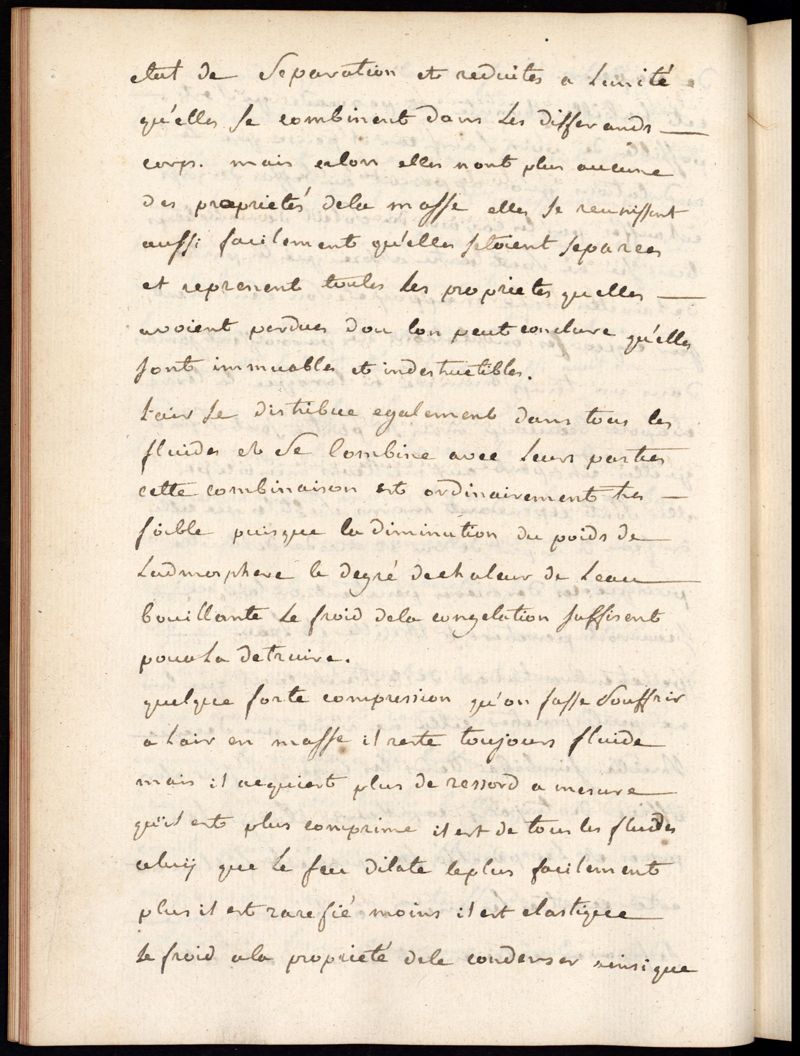 etat de Separation et reduites a Lunité
qu'elles se combinent dans Les differands
corps. mais alors elles nont plus aucune
des proprietés dela masse elles se reunissent
aussi facilement qu'elles setoient separees
et reprenent toutes les proprietes quelles
avoient perdues dou lon peut conclure qu'elles
sont immuables et indestructibles.
L'air se distribue egalement dans tous les
fluides et se Combine avec Leurs parties
cette combinaison est ordinairement tres
foible puisque la diminution du poids de
Ladmosphere le degré dechaleur de Leau
bouillante Le froid dela congelation suffisent
pour La detruire.
quelque forte compression qu'on fasse Souffrir
a L'air en masse il reste toujours fluide
mais il acquiert plus de ressord a mesure
qu'il est plus comprime il est de tous les fluides
celuy que Le feu dilate leplus facilement
plus il est rarefié moins il est elastique
Le froid ala proprieté dele condenser ainsi que